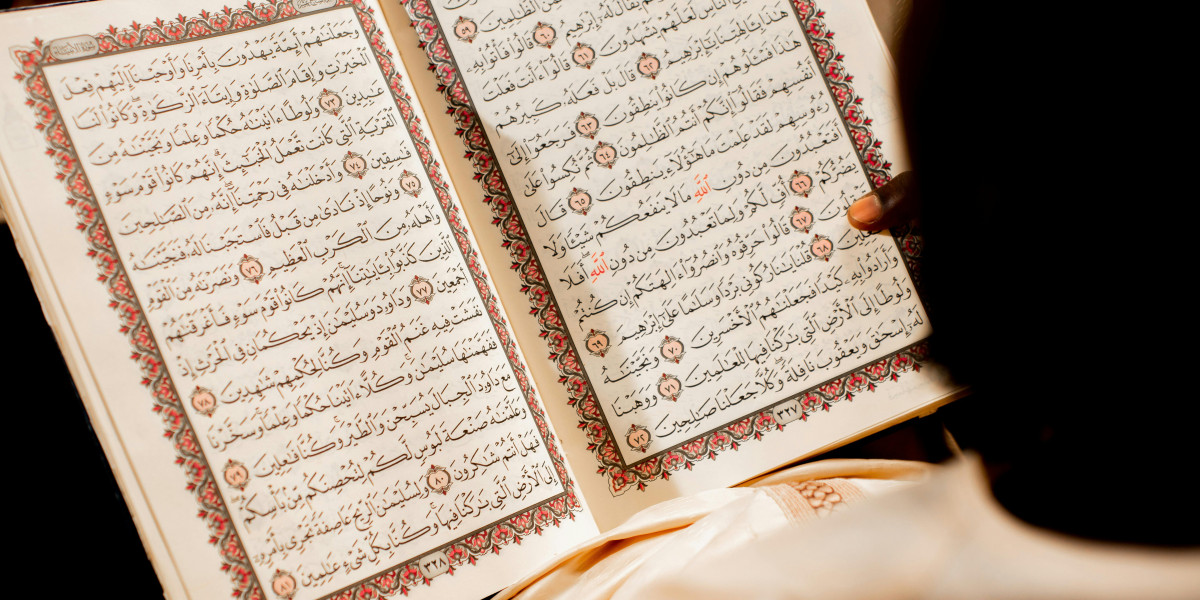 مِنَ ٱلظَّـٰلِمِينَ ٥٩
يُقَالُ لَهُۥٓ إِبْرَٰهِيمُ ٦٠ قَالُوا۟ فَأْتُوا۟ بِهِۦ
ٱلنَّاسِ لَعَلَّهُمْ يَشْهَدُونَ ٦١ قَالُوٓا۟ ءَأَنتَ فَعَلْتَ
هَـٰذَا بِـَٔالِهَتِنَا يَـٰٓإِبْرَٰهِيمُ ٦٢ قَالَ بَلْ فَعَلَهُۥ كَبِيرُهُمْ
هَـٰذَا فَسْـَٔلُوهُمْ إِن كَانُوا۟ يَنطِقُونَ ٦٣ فَرَجَعُوٓا۟ إِلَىٰٓ
أَنفُسِهِمْ فَقَالُوٓا۟ إِنَّكُمْ أَنتُمُ ٱلظَّـٰلِمُونَ ٦٤ ثُمَّ نُكِسُوا۟ عَلَىٰ
رُءُوسِهِمْ لَقَدْ عَلِمْتَ مَا هَـٰٓؤُلَآءِ يَنطِقُونَ ٦٥ قَالَ
أَفَتَعْبُدُونَ مِن دُونِ ٱللَّهِ مَا لَا يَنفَعُكُمْ شَيْـًٔا وَلَا
يَضُرُّكُمْ ٦٦ أُفٍّ لَّكُمْ وَلِمَا تَعْبُدُونَ مِن دُونِ ٱللَّهِ ۖ أَفَلَا
٦٧ قَالُوا۟ حَرِّقُوهُ وَٱنصُرُوٓا۟ ءَالِهَتَكُمْ إِن كُنتُمْ
٦٨ قُلْنَا يَـٰنَارُ كُونِى بَرْدًا وَسَلَـٰمًا عَلَىٰٓ إِبْرَٰهِيمَ ٦٩
وَأَرَادُوا۟ بِهِۦ كَيْدًا فَجَعَلْنَـٰهُمُ ٱلْأَخْسَرِينَ ٧٠ وَنَجَّيْنَـٰهُ
وَلُوطًا إِلَى ٱلْأَرْضِ ٱلَّتِى بَـٰرَكْنَا فِيهَا لِلْعَـٰلَمِينَ ٧١ وَوَهَبْنَا
لَهُۥٓ إِسْحَـٰقَ وَيَعْقُوبَ نَافِلَةً ۖ وَكُلًّا جَعَلْنَا صَـٰلِحِينَ ٧٢
٣٢٧
سُورَةُ الأَنْبِيَاءِ
وَجَعَلْنَـٰهُمْ أَئِمَّةً يَهْدُونَ بِأَمْرِنَا وَأَوْحَيْنَآ إِلَيْهِمْ فِعْلَ
ٱلْخَيْرَٰتِ وَإِقَامَ ٱلصَّلَوٰةِ وَإِيتَآءَ ٱلزَّكَوٰةِ ۖ وَكَانُوا۟ لَنَا
عَـٰبِدِينَ ٧٣ وَلُوطًا ءَاتَيْنَـٰهُ حُكْمًا وَعِلْمًا وَنَجَّيْنَـٰهُ مِنَ
ٱلْقَرْيَةِ ٱلَّتِى كَانَت تَّعْمَلُ ٱلْخَبَـٰٓئِثَ ۗ إِنَّهُمْ كَانُوا۟ قَوْمَ سَوْءٍ
فَـٰسِقِينَ ٧٤ وَأَدْخَلْنَـٰهُ فِى رَحْمَتِنَآ ۖ إِنَّهُۥ مِنَ ٱلصَّـٰلِحِينَ
٧٥ وَنُوحًا إِذْ نَادَىٰ مِن قَبْلُ فَٱسْتَجَبْنَا لَهُۥ فَنَجَّيْنَـٰهُ
وَأَهْلَهُۥ مِنَ ٱلْكَرْبِ ٱلْعَظِيمِ ٧٦ وَنَصَرْنَـٰهُ مِنَ ٱلْقَوْمِ
ٱلَّذِينَ كَذَّبُوا۟ بِـَٔايَـٰتِنَآ ۚ إِنَّهُمْ كَانُوا۟ قَوْمَ سَوْءٍ فَأَغْرَقْنَـٰهُمْ
أَجْمَعِينَ ٧٧ وَدَاوُۥدَ وَسُلَيْمَـٰنَ إِذْ يَحْكُمَانِ فِى ٱلْحَرْثِ إِذْ
نَفَشَتْ فِيهِ غَنَمُ ٱلْقَوْمِ وَكُنَّا لِحُكْمِهِمْ شَـٰهِدِينَ ٧٨
فَفَهَّمْنَـٰهَا سُلَيْمَـٰنَ ۚ وَكُلًّا ءَاتَيْنَا حُكْمًا وَعِلْمًا ۚ وَسَخَّرْنَا
مَعَ دَاوُۥدَ ٱلْجِبَالَ يُسَبِّحْنَ وَٱلطَّيْرَ ۚ وَكُنَّا فَـٰعِلِينَ ٧٩
وَعَلَّمْنَـٰهُ صَنْعَةَ لَبُوسٍ لَّكُمْ لِتُحْصِنَكُم مِّنۢ بَأْسِكُمْ ۖ
فَهَلْ أَنتُمْ شَـٰكِرُونَ ٨٠ وَلِسُلَيْمَـٰنَ ٱلرِّيحَ عَاصِفَةً تَجْرِى بِأَمْرِهِۦٓ
إِلَى ٱلْأَرْضِ ٱلَّتِى بَـٰرَكْنَا فِيهَا ۚ وَكُنَّا بِكُلِّ شَىْءٍ عَـٰلِمِينَ ٨١
٣٢٨